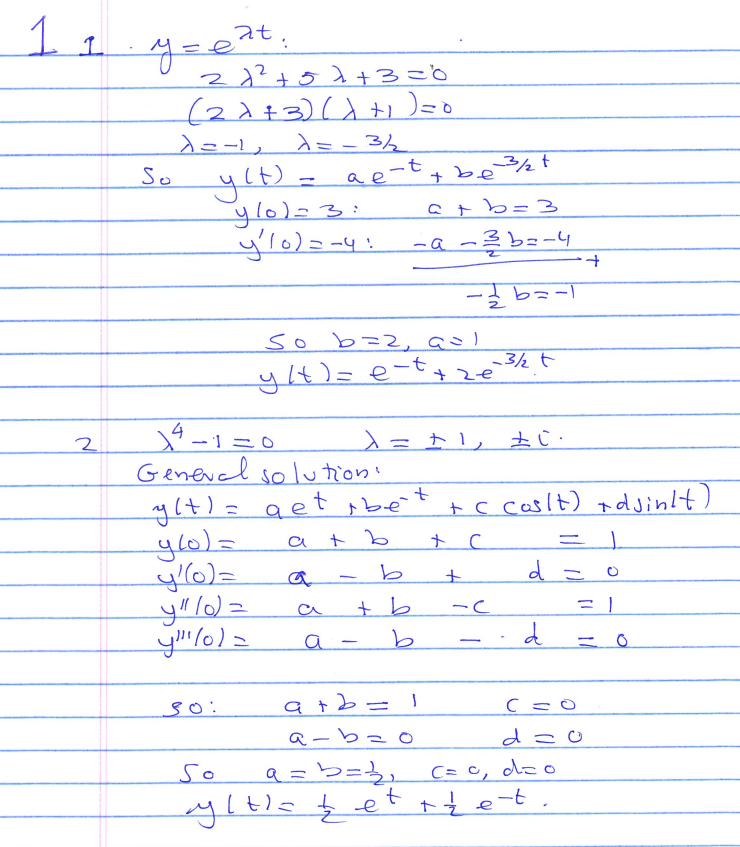 1 1. y = e^{λt}:
2λ² + 5λ + 3 = 0
(2λ+3)(λ+1) = 0
λ = -1, λ = -3/2
So y(t) = ae^{-t} + be^{-3/2 t}
y(0) = 3: a + b = 3
y'(0) = -4: -a - 3/2 b = -4
+
-1/2 b = -1
so b = 2, a = 1
y(t) = e^{-t} + 2e^{-3/2 t}
2 λ⁴ - 1 = 0 λ = ±1, ±i.
General solution:
y(t) = ae^t + be^{-t} + c cos(t) + d sin(t)
y(0) = a + b + c = 1
y'(0) = a - b + d = 0
y''(0) = a + b - c = 1
y'''(0) = a - b - d = 0
so: a + b = 1 c = 0
a - b = 0 d = 0
So a = b = 1/2, c = 0, d = 0
y(t) = 1/2 e^t + 1/2 e^{-t}.